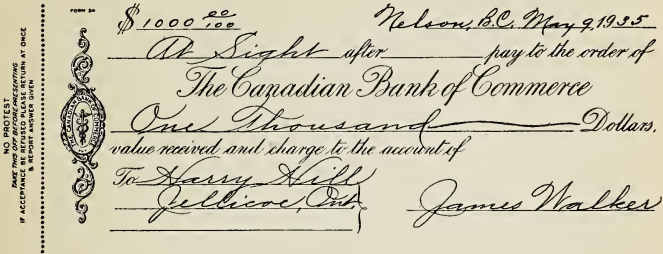 NO PROTEST
TAKE THIS OFF BEFORE PRESENTING
IF ACCEPTANCE BE REFUSED PLEASE RETURN AT ONCE
& REPORT ANSWER GIVEN
FORM 34
$1000 00/100 Nelson, B.C. May 9, 1935
At Sight after pay to the order of
The Canadian Bank of Commerce
THE CANADIAN BANK OF COMMERCE
One Thousand Dollars,
value received and charge to the account of
To Harry Hill
Jellicoe, Ont.
James Walker